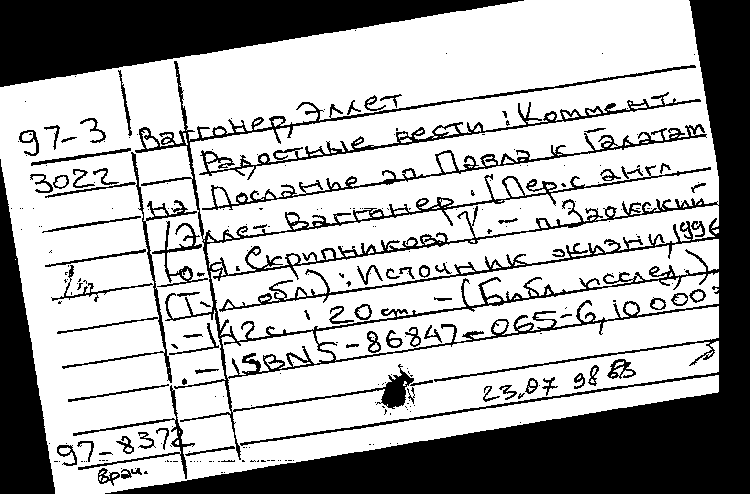 97-3 Ваггонер, Эллет
3022 Радостные вести : Коммент.
на Послание ап. Павла к Галатам
/Эллет Ваггонер ; [Пер. с англ.
Ю.Я. Скрипникова]. - п. Заокский
(Тул. обл.) : Источник жизни, 1996
. - 142 с. ; 20 см. - (Библ. исслед.)
. - ISBN 5-86847-065-6, 10 000
23.07 98
97-8372